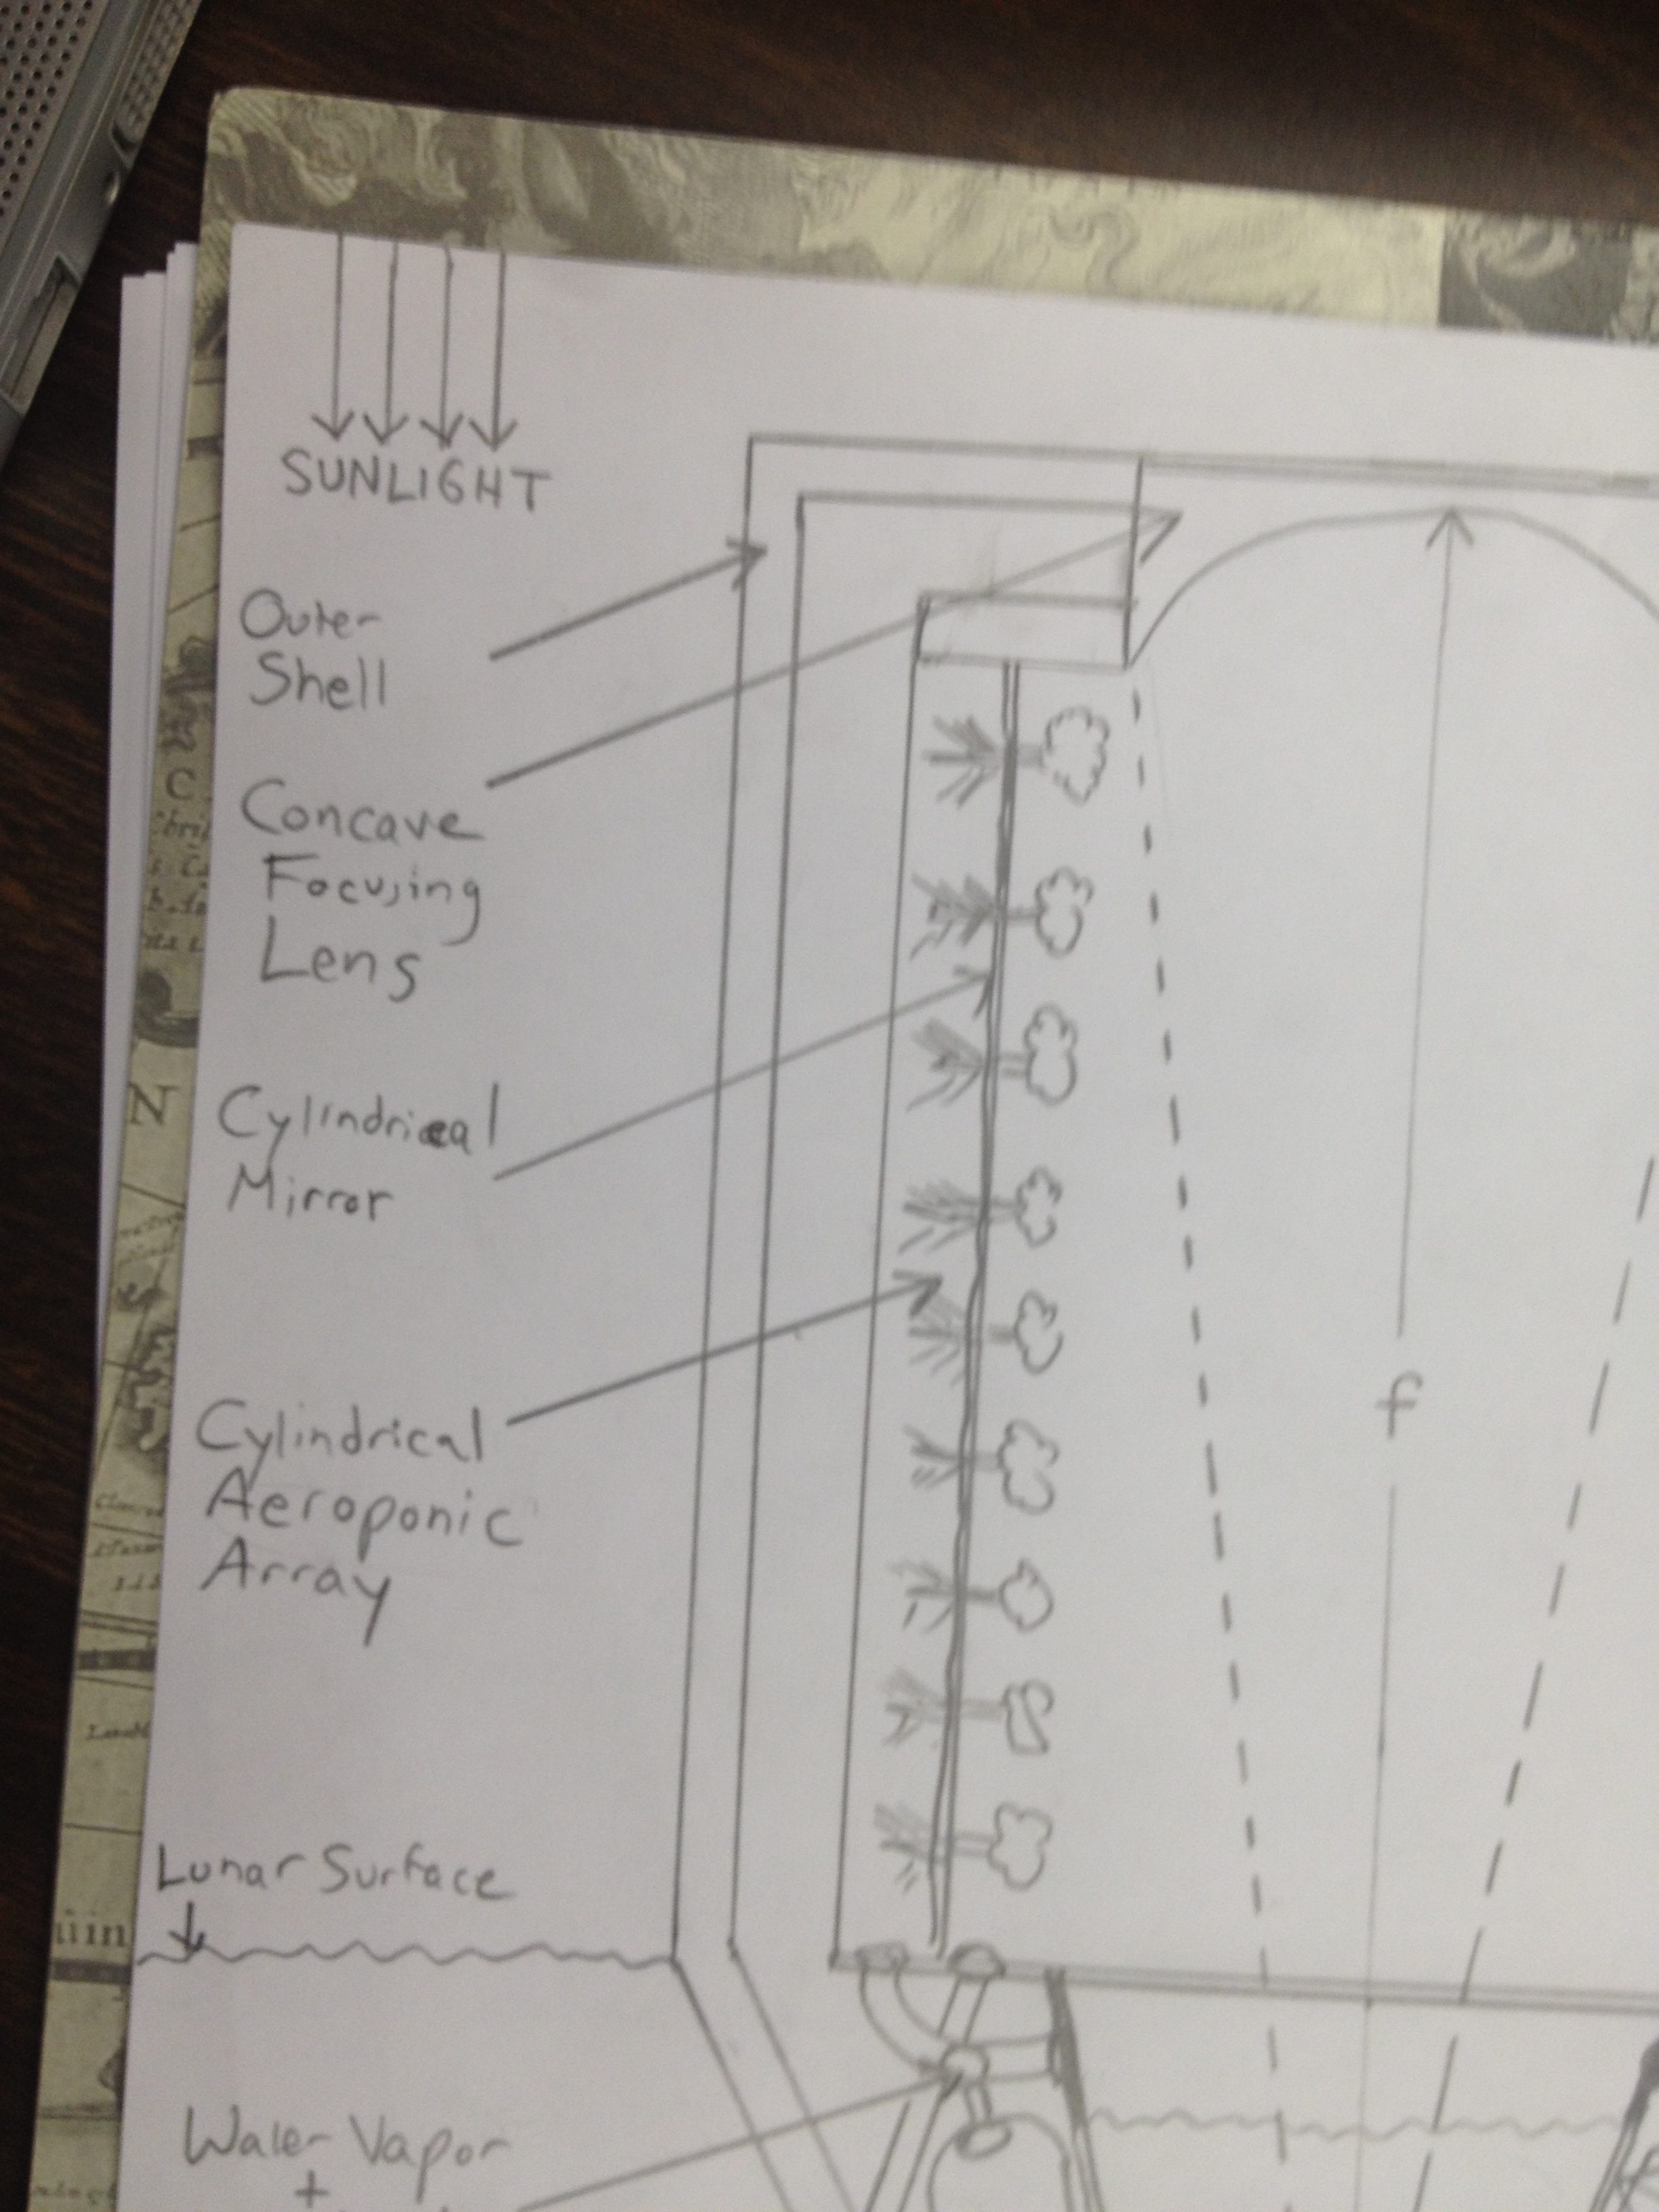 SUNLIGHT
Outer
Shell
Concave
Focusing
Lens
Cylindrical
Mirror
Cylindrical
Aeroponic
Array
f
Lunar Surface
Water Vapor
+
C
N